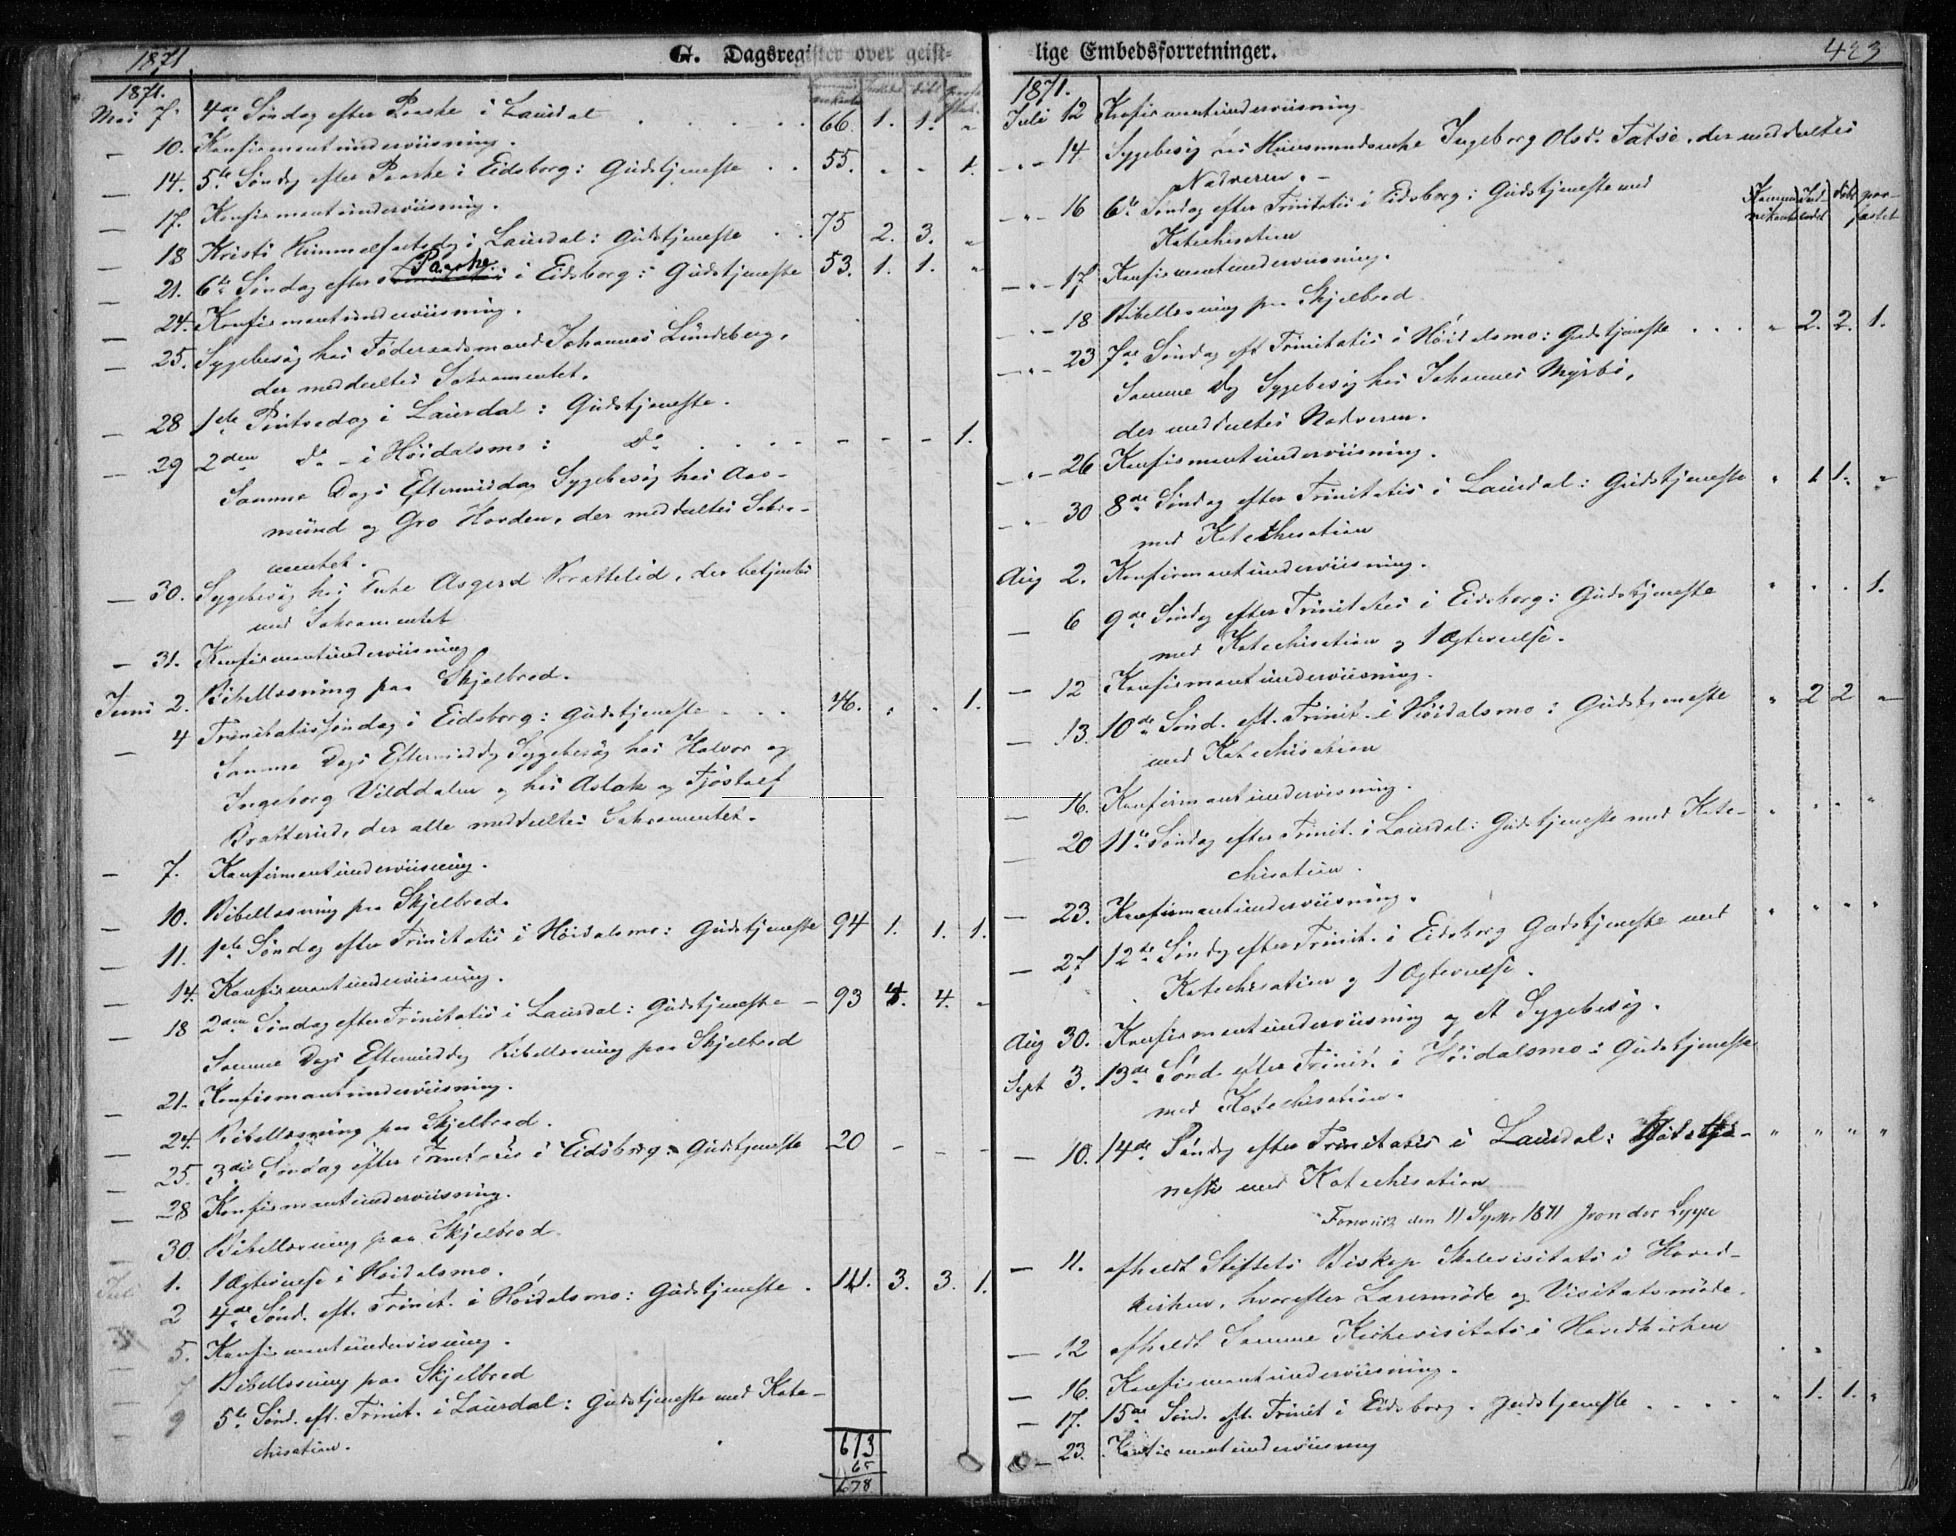 1871
G. Dagsregister over geist-
1871.
Mai 7. 4de Søndag efter Paaske i Laurdal . . . . . 66. 1. 1. "
— 10. Konfirmantunderviisning.
— 14. 5te Søndag efter Paaske i Eidsborg: Gudstjeneste . . 55. . . 1.
— 17. Konfirmantunderviisning.
— 18 Kristi Himmelfartsdag i Laurdal: Gudstjeneste . . 75 2. 3. "
— 21. 6te Søndag efter Paaske i Eidsborg: Gudstjeneste 53. 1. 1. "
— 24. Konfirmantunderviisning.
— 25. Sygebesøg hos Føderaadsmand Johannes Lundeberg,
der meddeeltes Sakramentet.
— 28 1ste Pintsedag i Laurdal: Gudstjeneste.
— 29 2den Do – i Høidalsmo: Do . . . . – – – 1.
Samme Dags Eftermiddag Sygebesøg hos Aas-
mund og Gro Haxden, der meddeeltes Sakra-
mentet.
— 30. Sygebesøg hos Enke Asgerd Brattelid, der betjentes
med Sakramentet
— 31. Konfirmantunderviisning
Juni 2. Bibellæsning paa Skjelbred.
— 4 Trinitatissøndag i Eidsborg: Gudstjeneste . . . 46. . . 1.
Samme Dags Eftermiddag Sygebesøg hos Halvor og
Ingeborg Vilddalen og hos Aslak og Tjøstolf
Bratterud, der alle meddeeltes Sakramentet.
— 7. Konfirmantunderviisning.
— 10. Bibellæsning paa Skjelbred.
— 11. 1ste Søndag efter Trinitatis i Høidalsmo: Gudstjeneste 94 1. 1. 1.
— 14. Konfirmantunderviisning.
— 18 2den Søndag efter Trinitatis i Laurdal: Gudstjeneste – 93 4. 4. "
Samme Dags Eftermiddag Bibellæsning paa Skjelbred
— 21. Konfirmantunderviisning.
— 24. Bibellæsning paa Skjelbred.
— 25. 3die Søndag efter Trinitatis i Eidsborg: Gudstjeneste 20 – – –
— 28 Konfirmantunderviisning.
— 30. Bibellæsning paa Skjelbred.
Juli 1. 1 Ægtevielse i Høidalsmo.
2 4de Sønd. eft. Trinit. i Høidalsmo: Gudstjeneste . 141. 3. 3. 1.
5. Konfirmantunderviisning.
7 Bibellæsning paa Skjelbred
9 5te Sønd. eft. Trinit. i Laurdal: Gudstjeneste med Kate-
chisation.
613
65
678
lige Embedsforretninger.
423
1871.
Juli 12 Konfirmantunderviisning
— " — 14 Sygebesøg hos Huusmandsenke Ingeborg Olsd. Tatsø, der meddeeltes
Nadveren. –
— " — 16 6te Søndag efter Trinitatis i Eidsborg: Gudstjeneste med
Katechisation
— " — 17 Konfirmantunderviisning.
— " — 18 Bibellæsning paa Skjelbred
— " — 23 7de Søndag eft. Trinitatis i Høidalsmo: Gudstjeneste . . . " 2. 2. 1.
Samme Dag Sygebesøg hos Johannes Myrbø,
der meddeeltes Nadveren.
— " — 26 Konfirmantunderviisning.
— " — 30 8de Søndag efter Trinitatis i Laurdal: Gudstjeneste " 1 1. "
med Katechisation
Aug 2. Konfirmantunderviisning.
— 6 9de Søndag efter Trinitatis i Eidsborg: Gudstjeneste " . . 1.
med Katechisation og 1 Ægtevielse.
— 12 Konfirmantunderviisning.
— 13. 10de Sønd. eft. Trinit. i Høidalsmo: Gudstjeneste " 2 2 "
med Katechisation
— 16. Konfirmantunderviisning.
— 20 11te Søndag efter Trinit. i Laurdal: Gudstjeneste med Kate- " " " "
chisation.
— 23. Konfirmantunderviisning.
— 27 12te Søndag efter Trinit. i Eidsborg Gudstjeneste med " " " "
Katechisation og 1 Ægtevielse.
Aug 30. Konfirmantunderviisning og et Sygebesøg.
Sept 3. 13de Sønd. efter Trinit. i Høidalsmo: Gudstjeneste
med Katechisation.
— 10. 14de Søndag efter Trinitatis i Laurdal: Gudstje- " " " "
neste med Katechisation
den 11 Septbr 1871
— 11. afholdt Stiftets Biskop Skolevisitats i Hoved-
kirken, hvorefter Lærermøde og Visitatsmøde.
— 12 afholdt Samme Kirkevisitats i Hovedkirken
— 16. Konfirmantunderviisning.
— 17. 15de Sønd. eft. Trinit i Eidsborg. Gudstjeneste . . . . " 1. 1. "
— 23. Konfirmantunderviisning